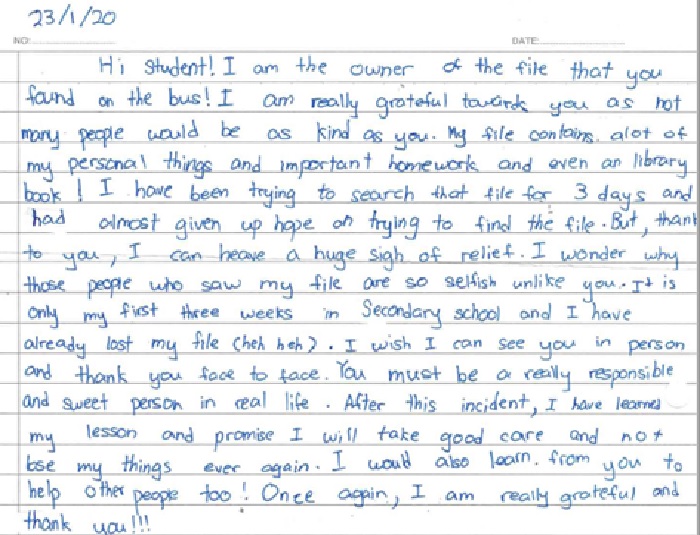 23/1/20
NO: DATE:
Hi student! I am the owner of the file that you
found on the bus! I am really grateful towards you as not
many people would be as kind as you. My file contains alot of
my personal things and important homework and even an library
book! I have been trying to search that file for 3 days and
had almost given up hope on trying to find the file. But, thank
to you, I can heave a huge sigh of relief. I wonder why
those people who saw my file are so selfish unlike you. It is
only my first three weeks in Secondary school and I have
already lost my file (heh heh). I wish I can see you in person
and thank you face to face. You must be a really responsible
and sweet person in real life. After this incident, I have learned
my lesson and promise I will take good care and not
lose my things ever again. I would also learn from you to
help other people too! Once again, I am really grateful and
thank you!!!